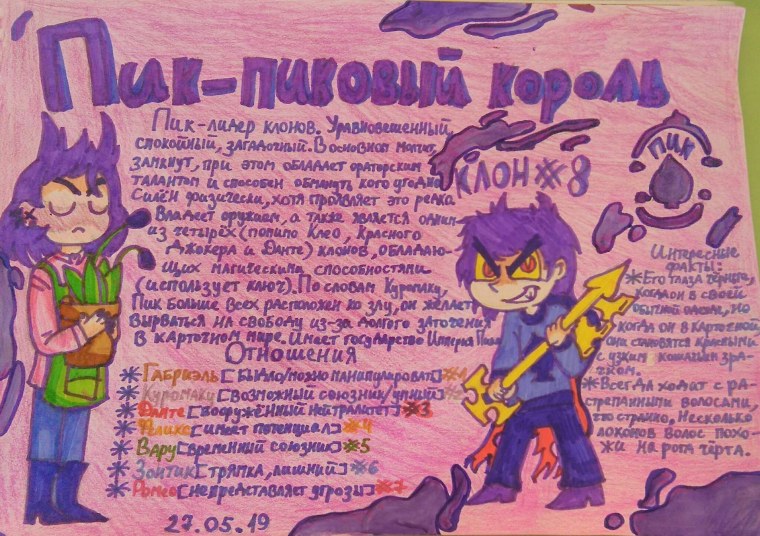 Пик-пиковый король
Пик-лидер клонов. Уравновешенный,
спокойный, загадочный. В основном молчит,
замкнут, при этом обладает ораторским
талантом и способен обмануть кого угодно.
Силён физически, хотя проявляет это редко.
Владеет оружием, а также является одним
из четырёх (помимо Клео, Красного
Джокера и Данте) клонов, обладаю-
щих магическими способностями
(использует ключ). По словам Куромаку,
Пик больше всех расположен ко злу, он желает
вырваться на свободу из-за долгого заточения
в карточном мире. Имеет государство Империя Пика
Отношения
*Габриэль [быдло/можно манипулировать] #1
*Куромаку [возможный союзник/умный] #2
*Данте [вооружённый нейтралитет] #3
*Феликс [имеет потенциал] #4
*Вару [временный союзник] #5
*Зонтик [тряпка, лишний] #6
*Ромео [не представляет угрозы] #7
27.05.19
клон #8
Пик
Интересные
факты:
*Его глаза чёрные,
когда он в своей
обычной одежде, но
когда он в карточной,
они становятся кривыми
с узким кошачьим зра-
чком.
*Всегда ходит с ра-
стрепанными волосами,
что странно. Несколько
локонов волос похо-
жи на рога чёрта.